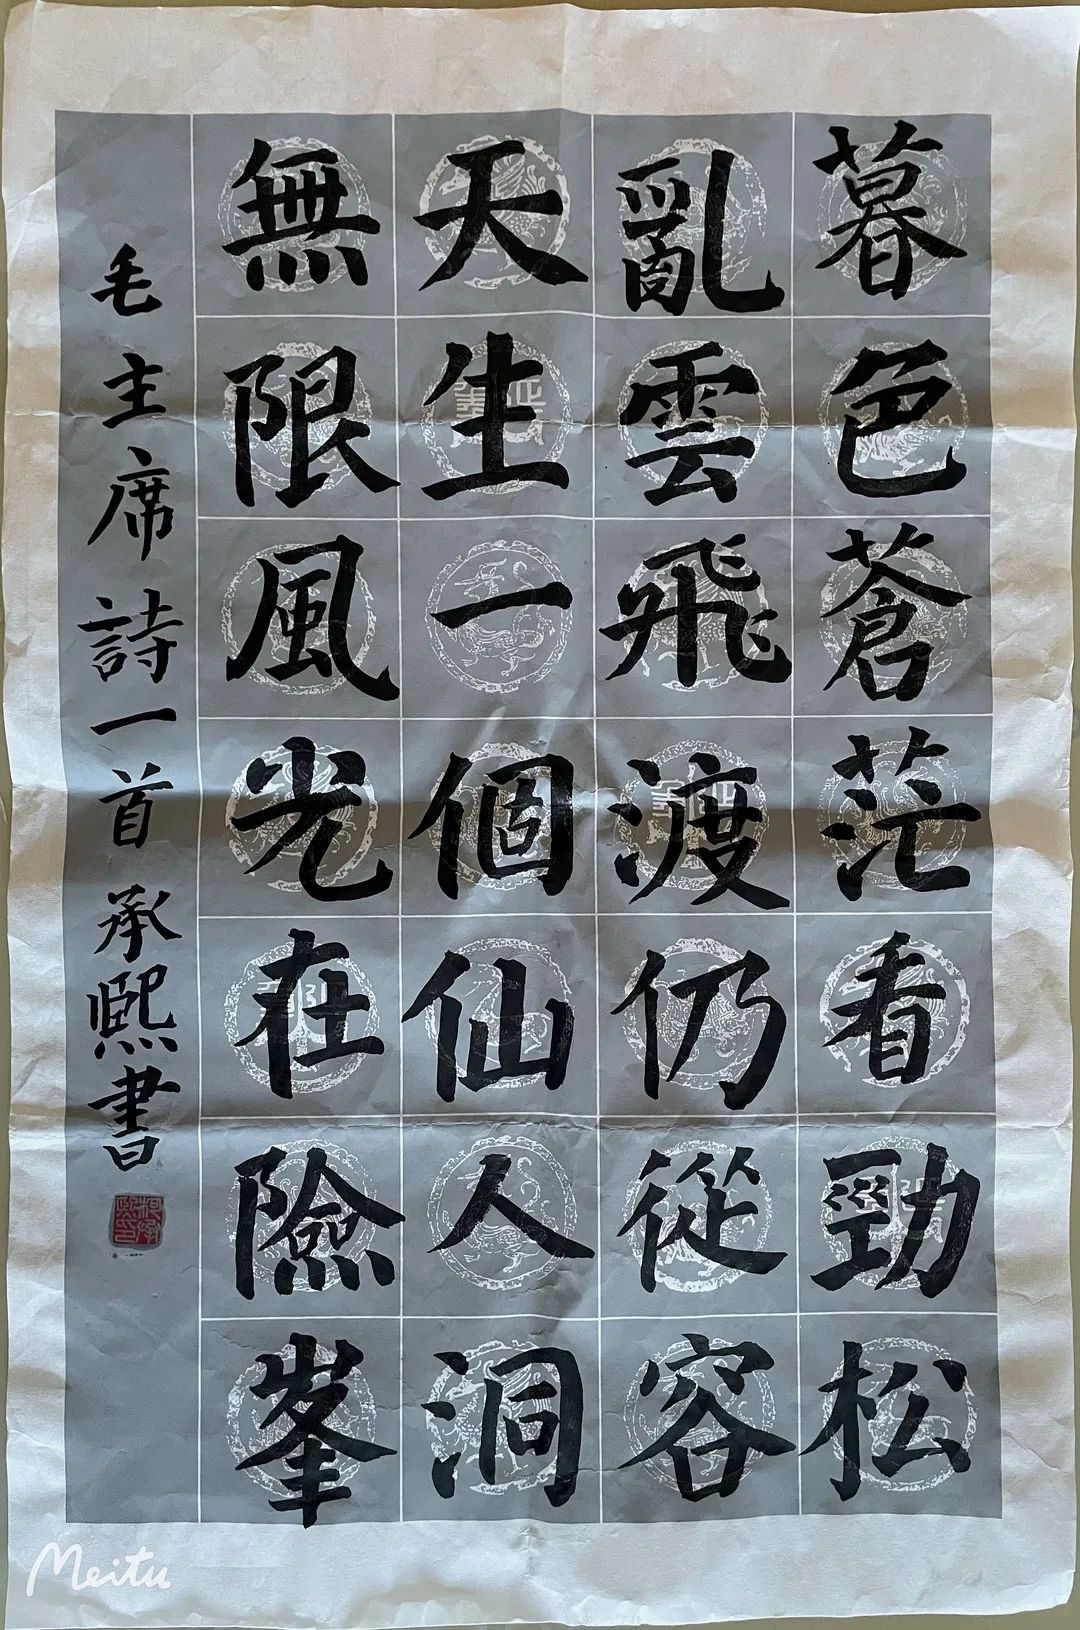 暮色蒼茫看勁松
亂雲飛渡仍從容
天生一個仙人洞
無限風光在險峯
毛主席詩一首 承熙書
Meitu